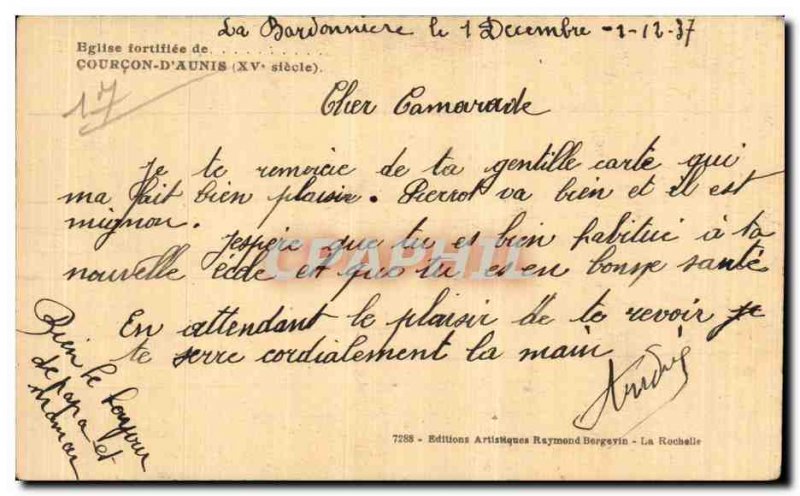 La Bardonniere le 1 Decembre -1-12-37
Eglise fortifiée de . . . . . . . . . .
COURÇON-D'AUNIS (XVᵉ siècle).
17
Cher Camarade
Je te remercie de ta gentille carte qui
ma fait bien plaisir. Pierrot va bien et il est
mignon.
Jespère que tu es bien habitué à ta
nouvelle école et que tu es en bonne santé
CPAPHIL
En attendant le plaisir de te revoir je
te serre cordialement la main
André
Bien le bonjour
de papa et
maman
7288 - Editions Artistiques Raymond Bergevin - La Rochelle